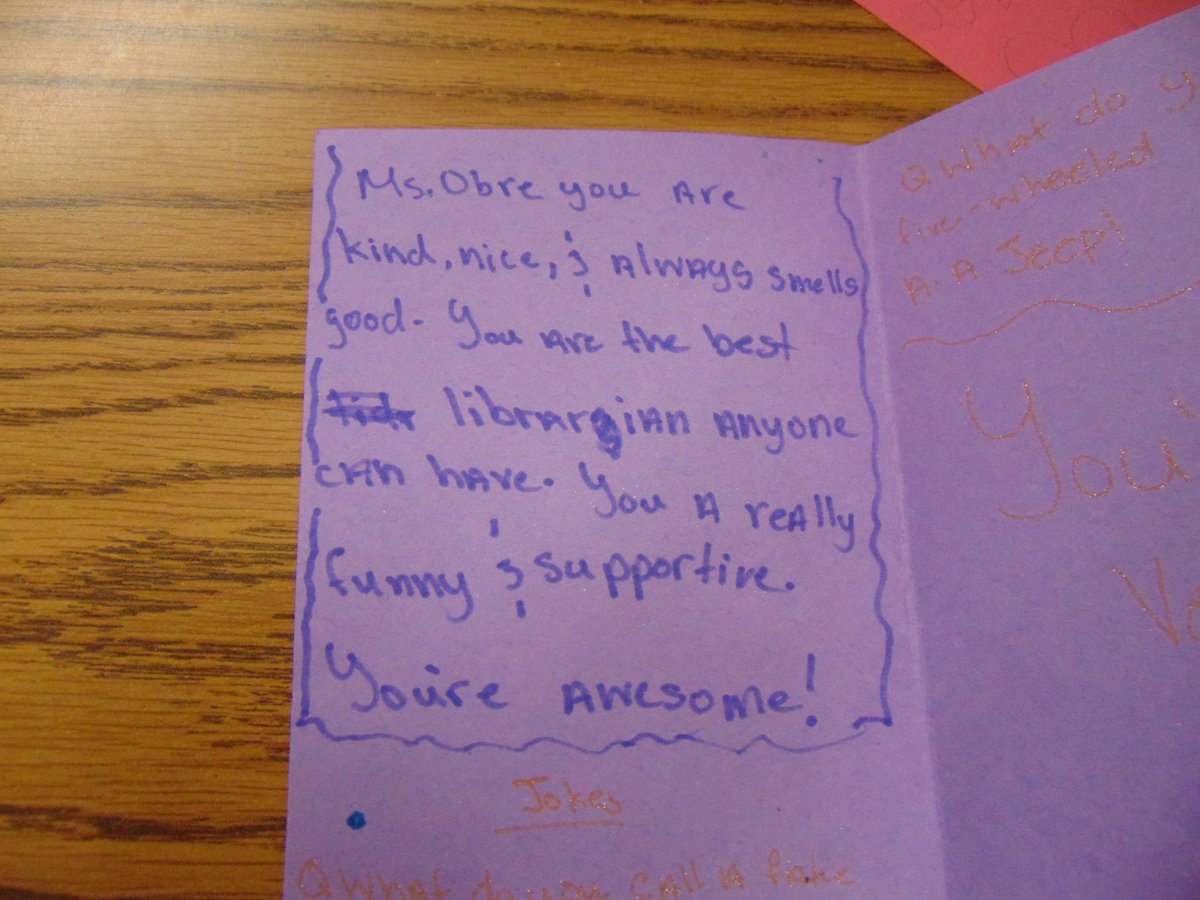 Ms. Obre you are
kind, nice, & always smells
good. You are the best
librargian anyone
can have. You a really
funny & supportive.
You're awesome!
Jokes
Q What do you call a fake
Q What do y
five-wheeled
A. A Jeep!
You'